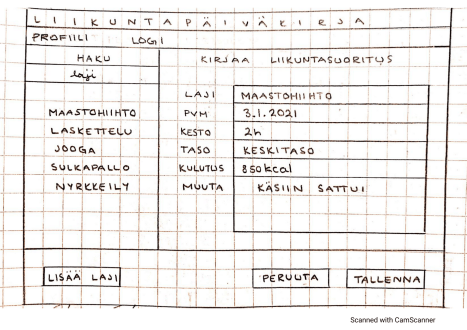 LIIKUNTAPÄIVÄKIRJA
PROFIILI LOGI
HAKU
laji
MAASTOHIIHTO
LASKETTELU
JOOGA
SULKAPALLO
NYRKKEILY
KIRJAA LIIKUNTASUORITUS
LAJI MAASTOHIIHTO
PVM 3.1.2021
KESTO 2h
TASO KESKITASO
KULUTUS 850kcal
MUUTA KÄSIIN SATTUI
LISÄÄ LAJI
PERUUTA TALLENNA
Scanned with CamScanner